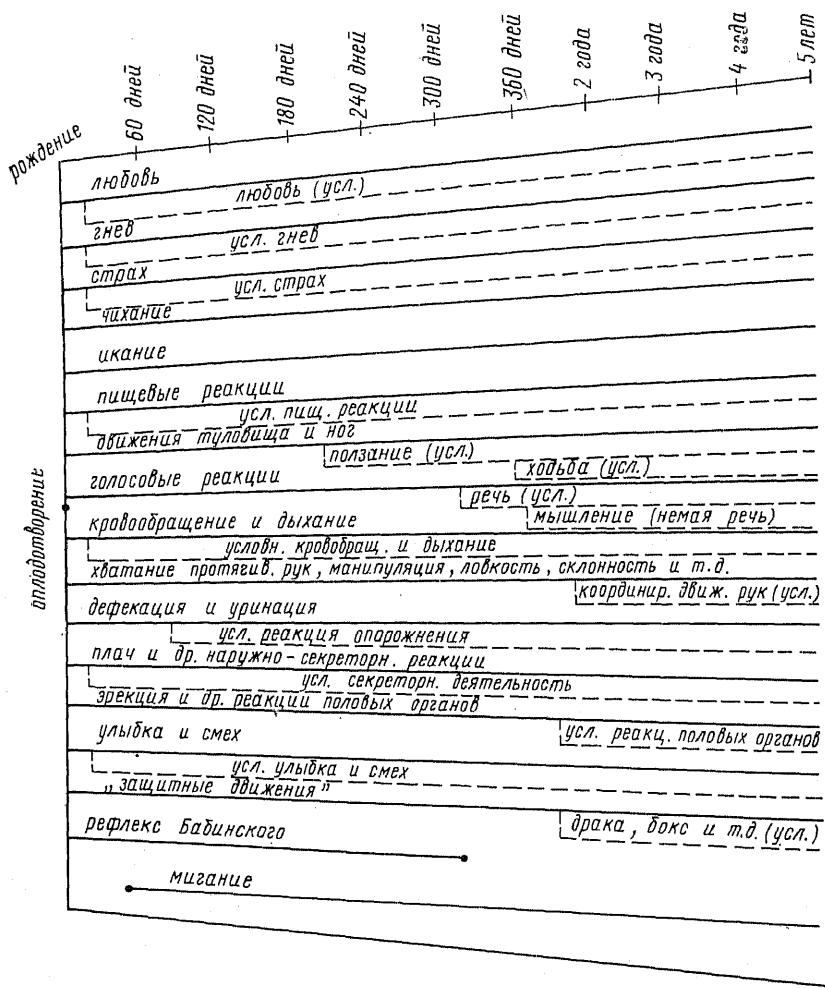 рождение
60 дней
120 дней
180 дней
240 дней
300 дней
360 дней
2 года
3 года
4 года
5 лет
любовь
любовь (усл.)
гнев
усл. гнев
страх
усл. страх
чихание
икание
пищевые реакции
усл. пищ. реакции
движения туловища и ног
ползание (усл.)
ходьба (усл.)
голосовые реакции
речь (усл.)
мышление (немая речь)
оплодотворение
кровообращение и дыхание
условн. кровобращ. и дыхание
хватание протягив. рук, манипуляция, ловкость, склонность и т.д.
координир. движ. рук (усл.)
дефекация и уринация
усл. реакция опорожнения
плач и др. наружно-секреторн. реакции
усл. секреторн. деятельность
эрекция и др. реакции половых органов
усл. реакц. половых органов
улыбка и смех
усл. улыбка и смех
„защитные движения”
драка, бокс и т.д. (усл.)
рефлекс Бабинского
мигание